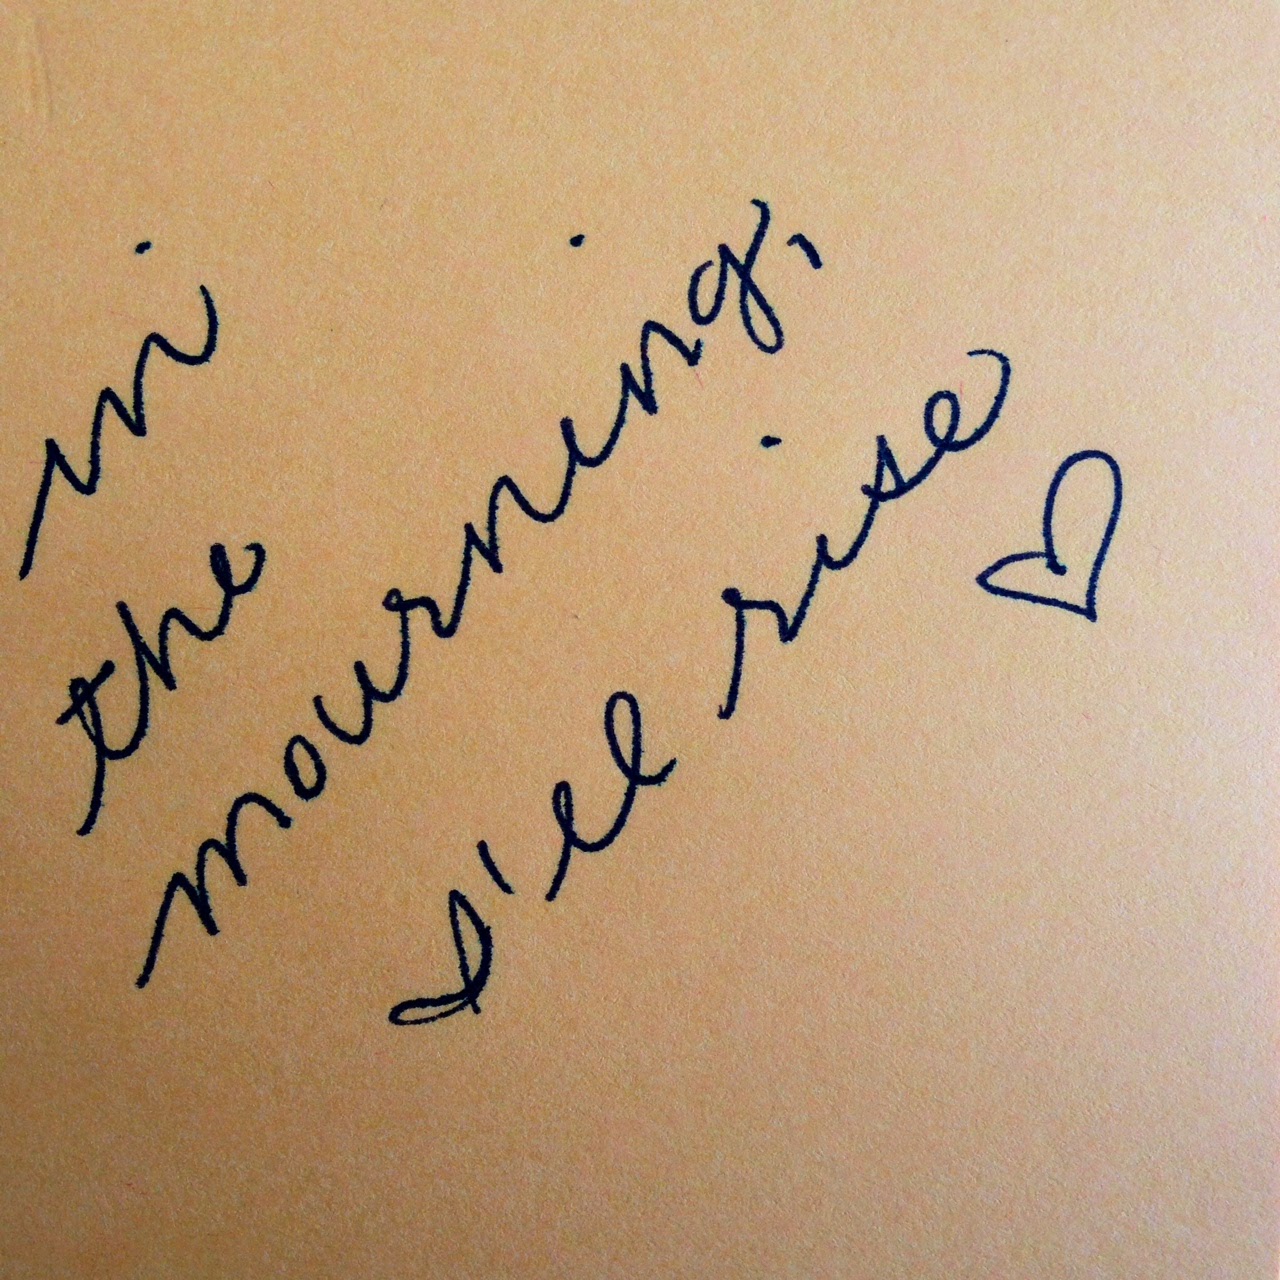 in
the
mourning,
I'll rise ♡